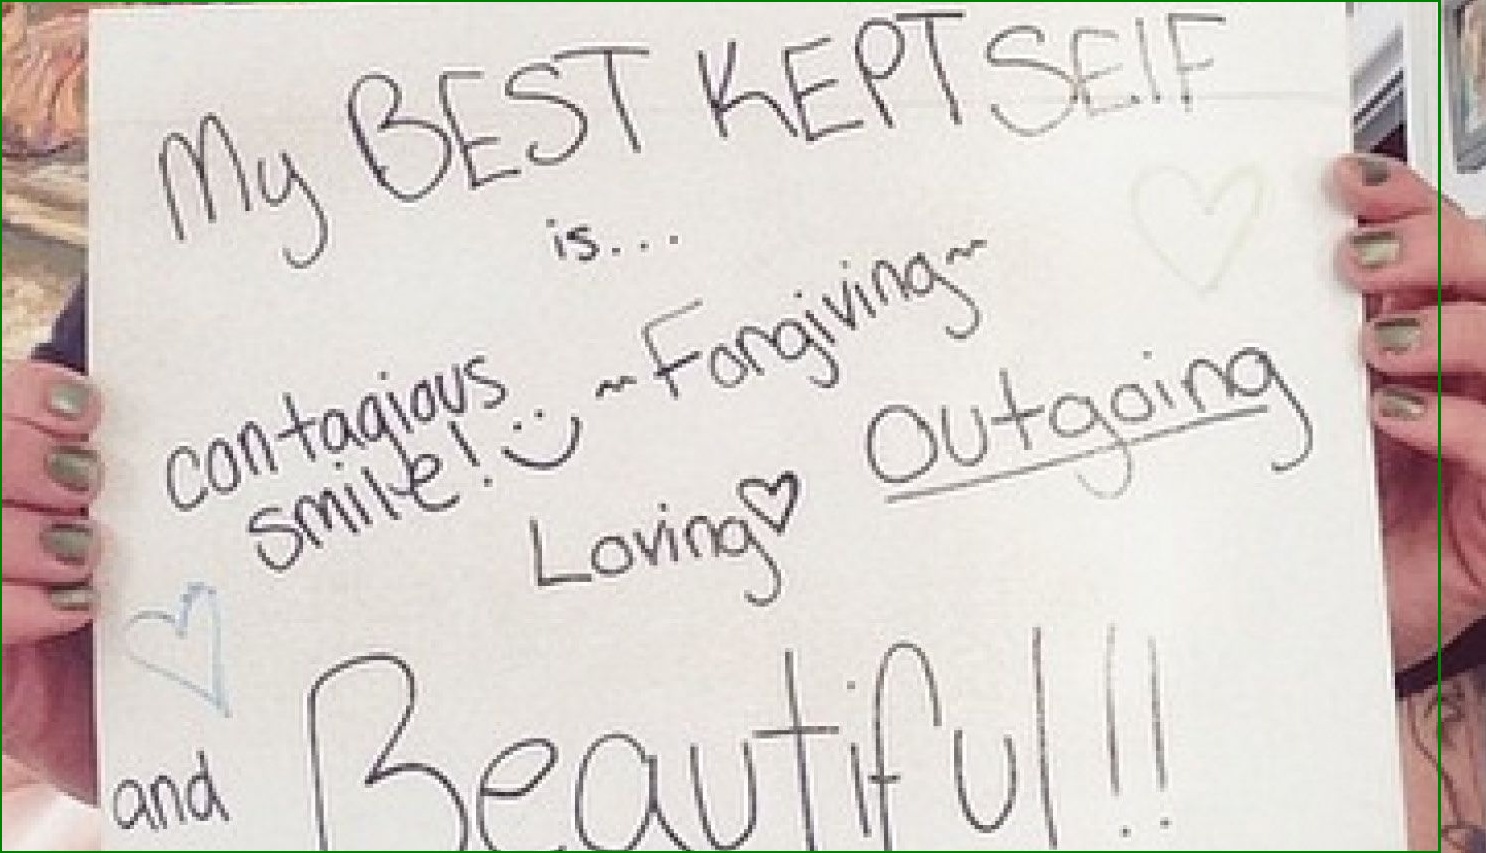 My BEST KEPT SELF
is...
contagious
smile! :)
~Forgiving~
Outgoing
Loving♡
and Beautiful!!